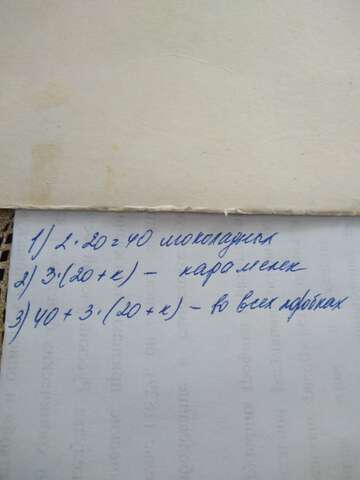 1) 2·20=40 шоколадных
2) 3·(20+к) – карамелек
3) 40 + 3·(20+к) – во всех коробках